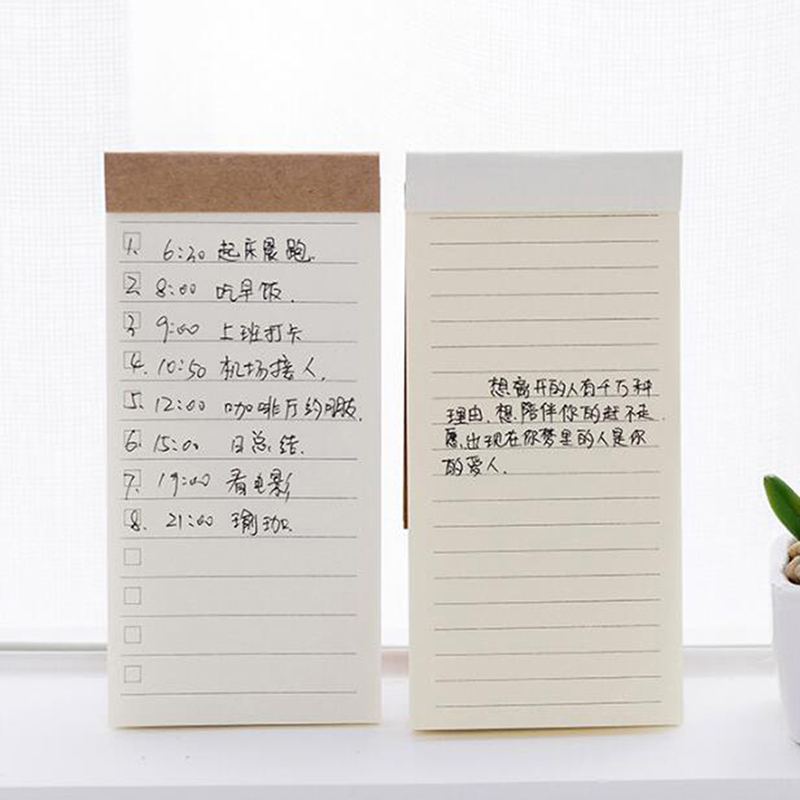 1. 6:30 起床晨跑.
2. 8:00 吃早饭.
3. 9:00 上班打卡
4. 10:50 机场接人.
5. 12:00 咖啡厅约朋友.
6. 15:00 日总结.
7. 19:00 看电影
8. 21:00 瑜珈.
想离开的人有千万种
理由.想陪伴你的赶不走.
愿,出现在你梦里的人是你
的爱人.